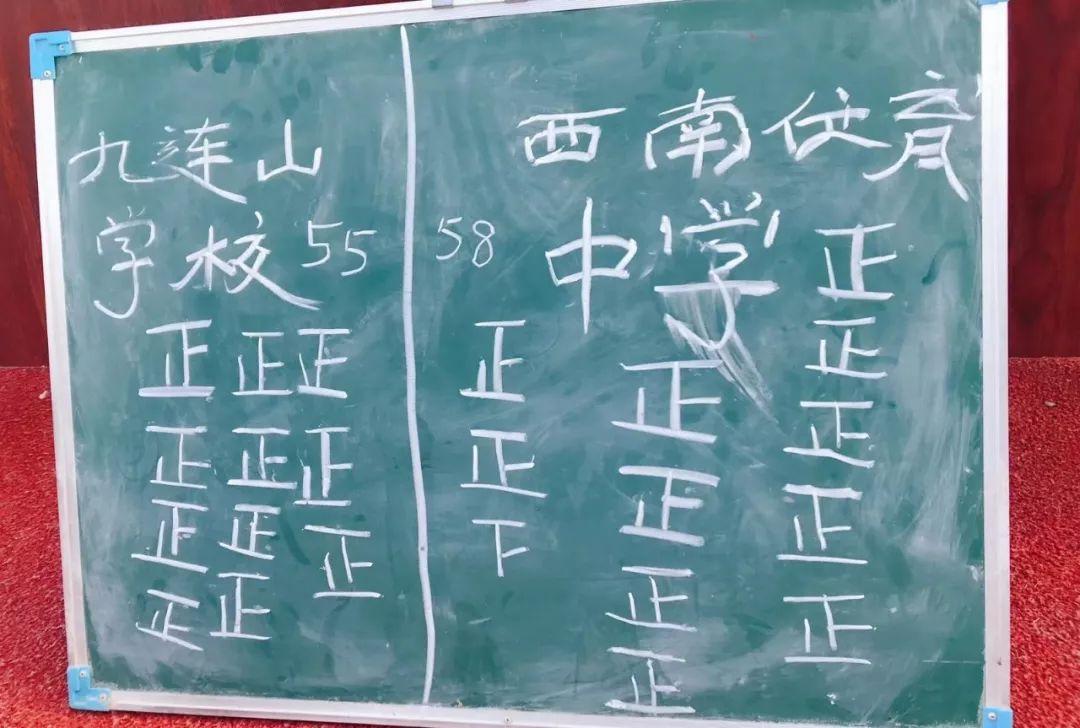 九连山
学校 55
正 正 正
正 正 正
正 正 正
正 正
西南体育
58 中学 正
正 正 正
正 正 正
下 正 正
正 正